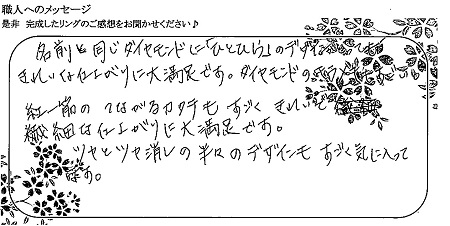 職人へのメッセージ
是非 完成したリングのご感想をお聞かせください♪
名前と同じダイヤモンドに「ひとひら」のデザインがとても
きれいな仕上がりに大満足です。ダイヤモンドの
紅一筋の つながるカタチも すごく きれいで
繊細な仕上がりに大満足です。
ツヤとツヤ消しの半々のデザインも すごく気に入って
ます。